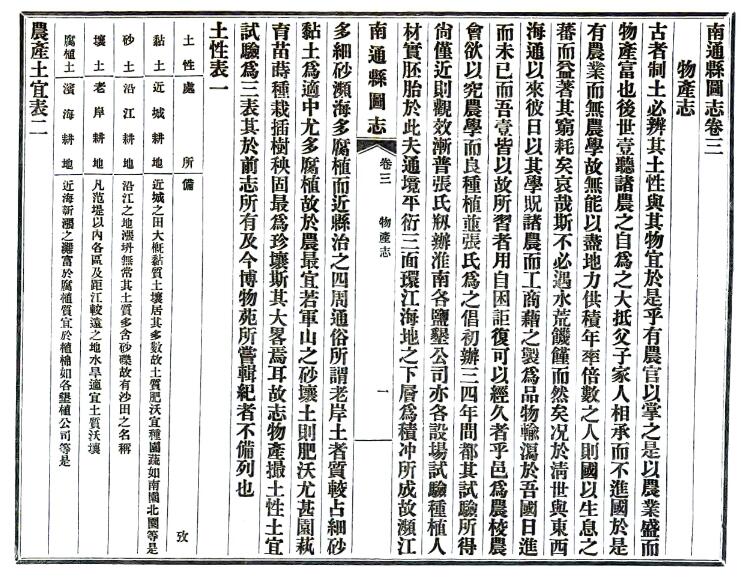 南通縣圖志卷三
物產志
古者制土必辨其土性與其物宜於是乎有農官以掌之是以農業盛而
物產富也後世壹聽諸農之自爲之大抵父子家人相承而不進國於是
有農業而無農學故無能以盡地力供積年率倍數之人則國以生息之
蕃而益著其窮耗矣哀哉斯不必遇水荒饑饉而然矣況於清世與東西
海通以來彼日以其學貺諸農而工商藉之製爲品物輸瀉於吾國日進
而未已而吾壹皆以故所習者用自困詎復可以經久者乎邑爲農棱農
會欲以究農學而良種植並張氏爲之倡初辦三四年間都其試驗所得
尙僅近則觀效漸普張氏剏辦淮南各鹽墾公司亦各設場試驗種植人
材實胚胎於此夫通境平衍三面環江海地之下層爲積冲所成故瀕江
南通縣圖志
卷三
物產志
一
多細砂瀕海多腐植而近縣治之四周通俗所謂老岸土者質較占細砂
黏土爲適中尤多腐植故於農最宜若軍山之砂壤土則肥沃尤甚園萟
育苗蒔種栽插樹秧固最爲珍壤斯其大畧焉耳故志物產撮土性土宜
試驗爲三表其於前志所有及今博物苑所嘗輯紀者不備列也
土性表一
土性
處所
備攷
黏土
近城耕地
近城之田大槪黏質土壤居其多數故土質肥沃宜種園蔬如南園北園等是
砂土
沿江耕地
沿江之地漲坍無常其土質多含砂礫故有沙田之名稱
壤土
老岸耕地
凡范堤以內各區及距江較遠之地水旱適宜土質沃壤
腐植土
濱海耕地
近海新漲之灘富於腐植質宜於植棉如各墾植公司等是
農產土宜表二